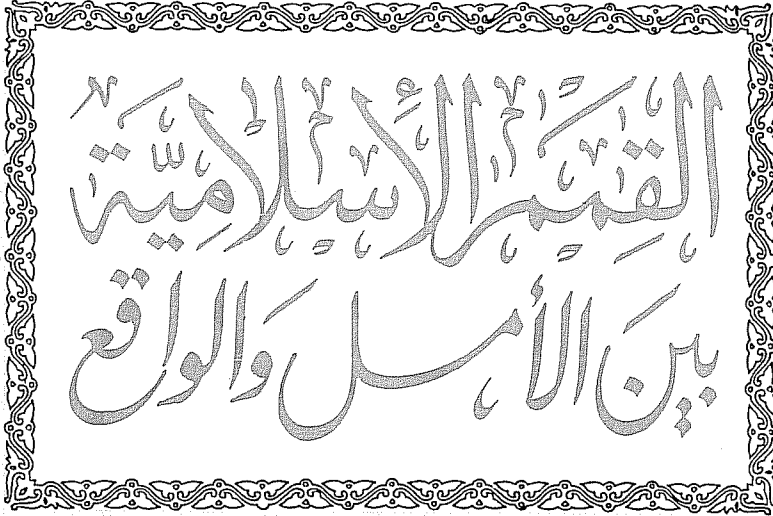 القِيَم الإِسْلاَمِيَّة
بينَ الأمل وَالواقع